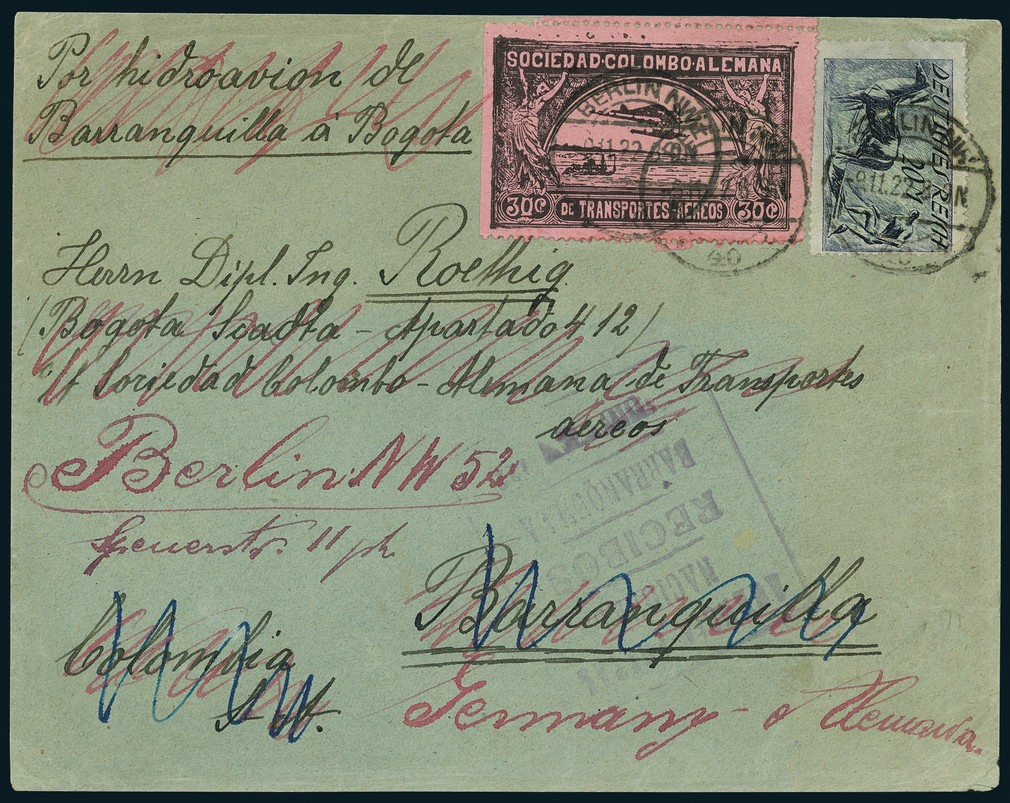 Por hidroavion de
Barranquilla á Bogota
SOCIEDAD·COLOMBO·ALEMANA
30¢ DE TRANSPORTES-AEREOS 30¢
BERLIN NW
9.11.22
40
DEUTSCHES REICH
20 M
BERLIN NW
9.11.22. 8-9N
Herrn Dipl. Ing. Roethig
(Bogota Scadta - Apartado 412)
Sociedad Colombo-Alemana de Transportes
aéreos
Berlin NW 52
11 ph
BARRANQUILLA
RECIBOS
Barranquilla
Colombia
S. A.
Germany - Alemania